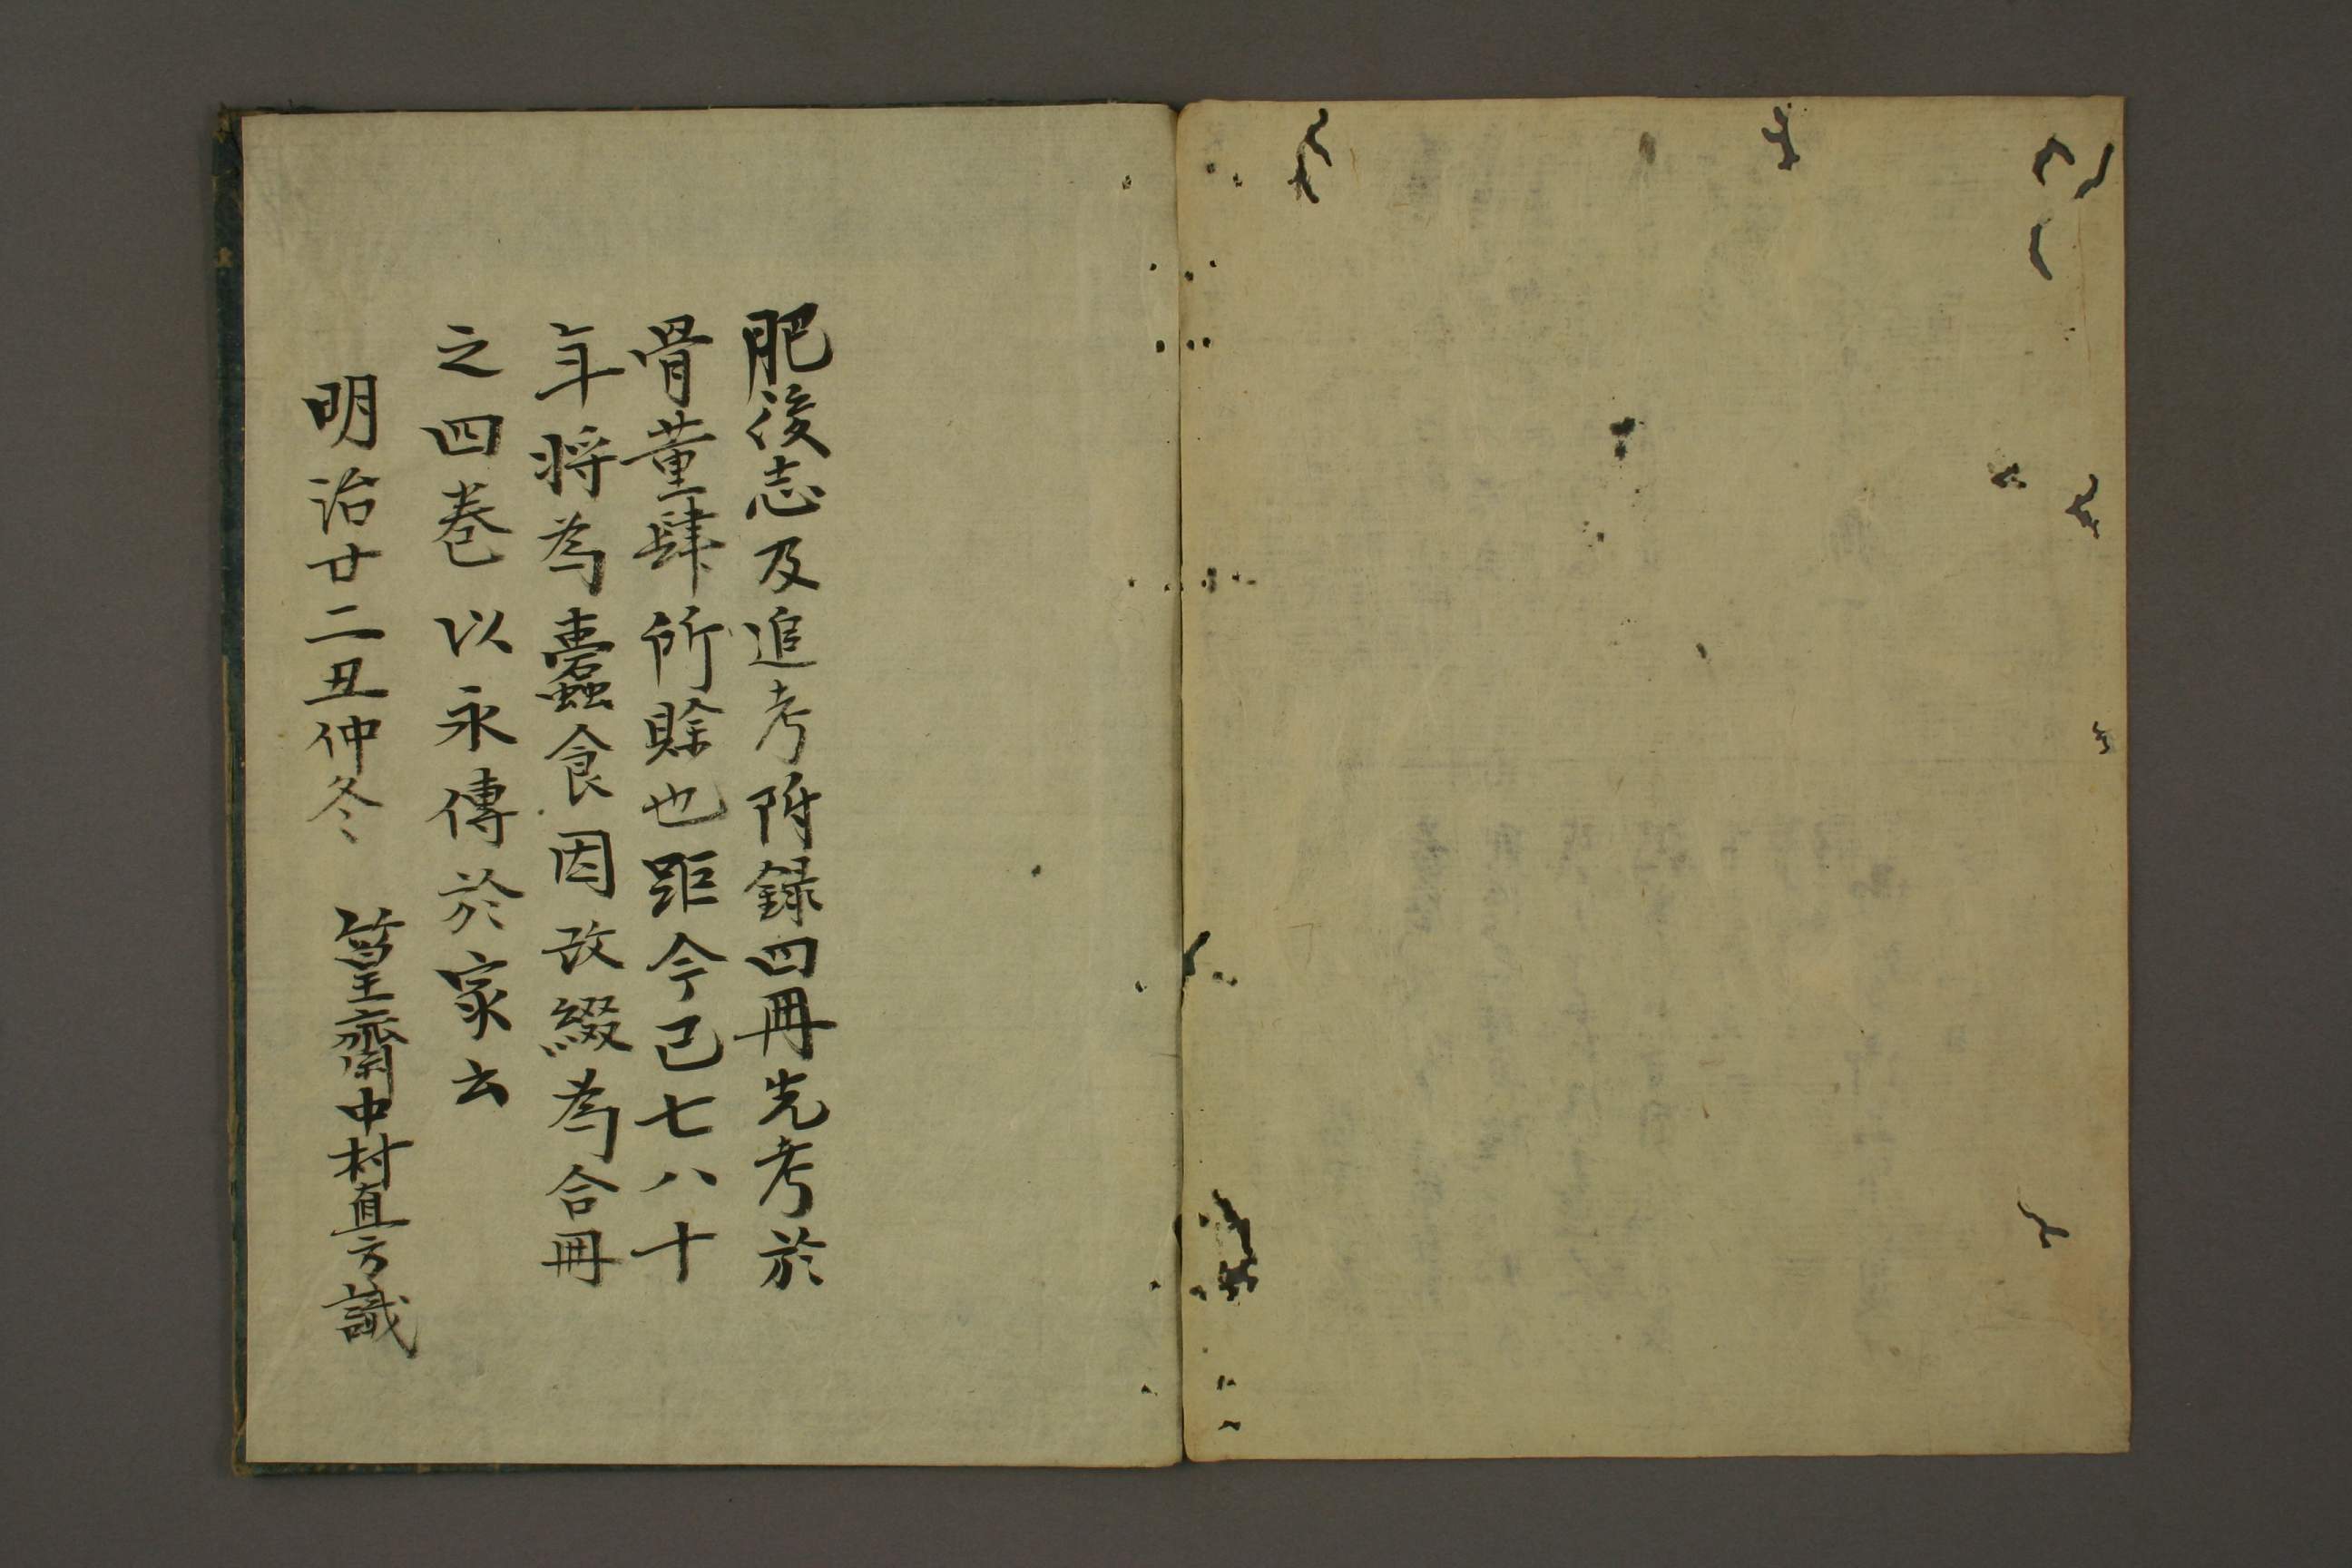 肥後志及追考附録四冊先考於
骨董肆所賖也距今已七八十
年将為蠹食因改綴為合冊
之四巻以永傳於家云
明治廿二丑仲冬 篁齋中村直方識